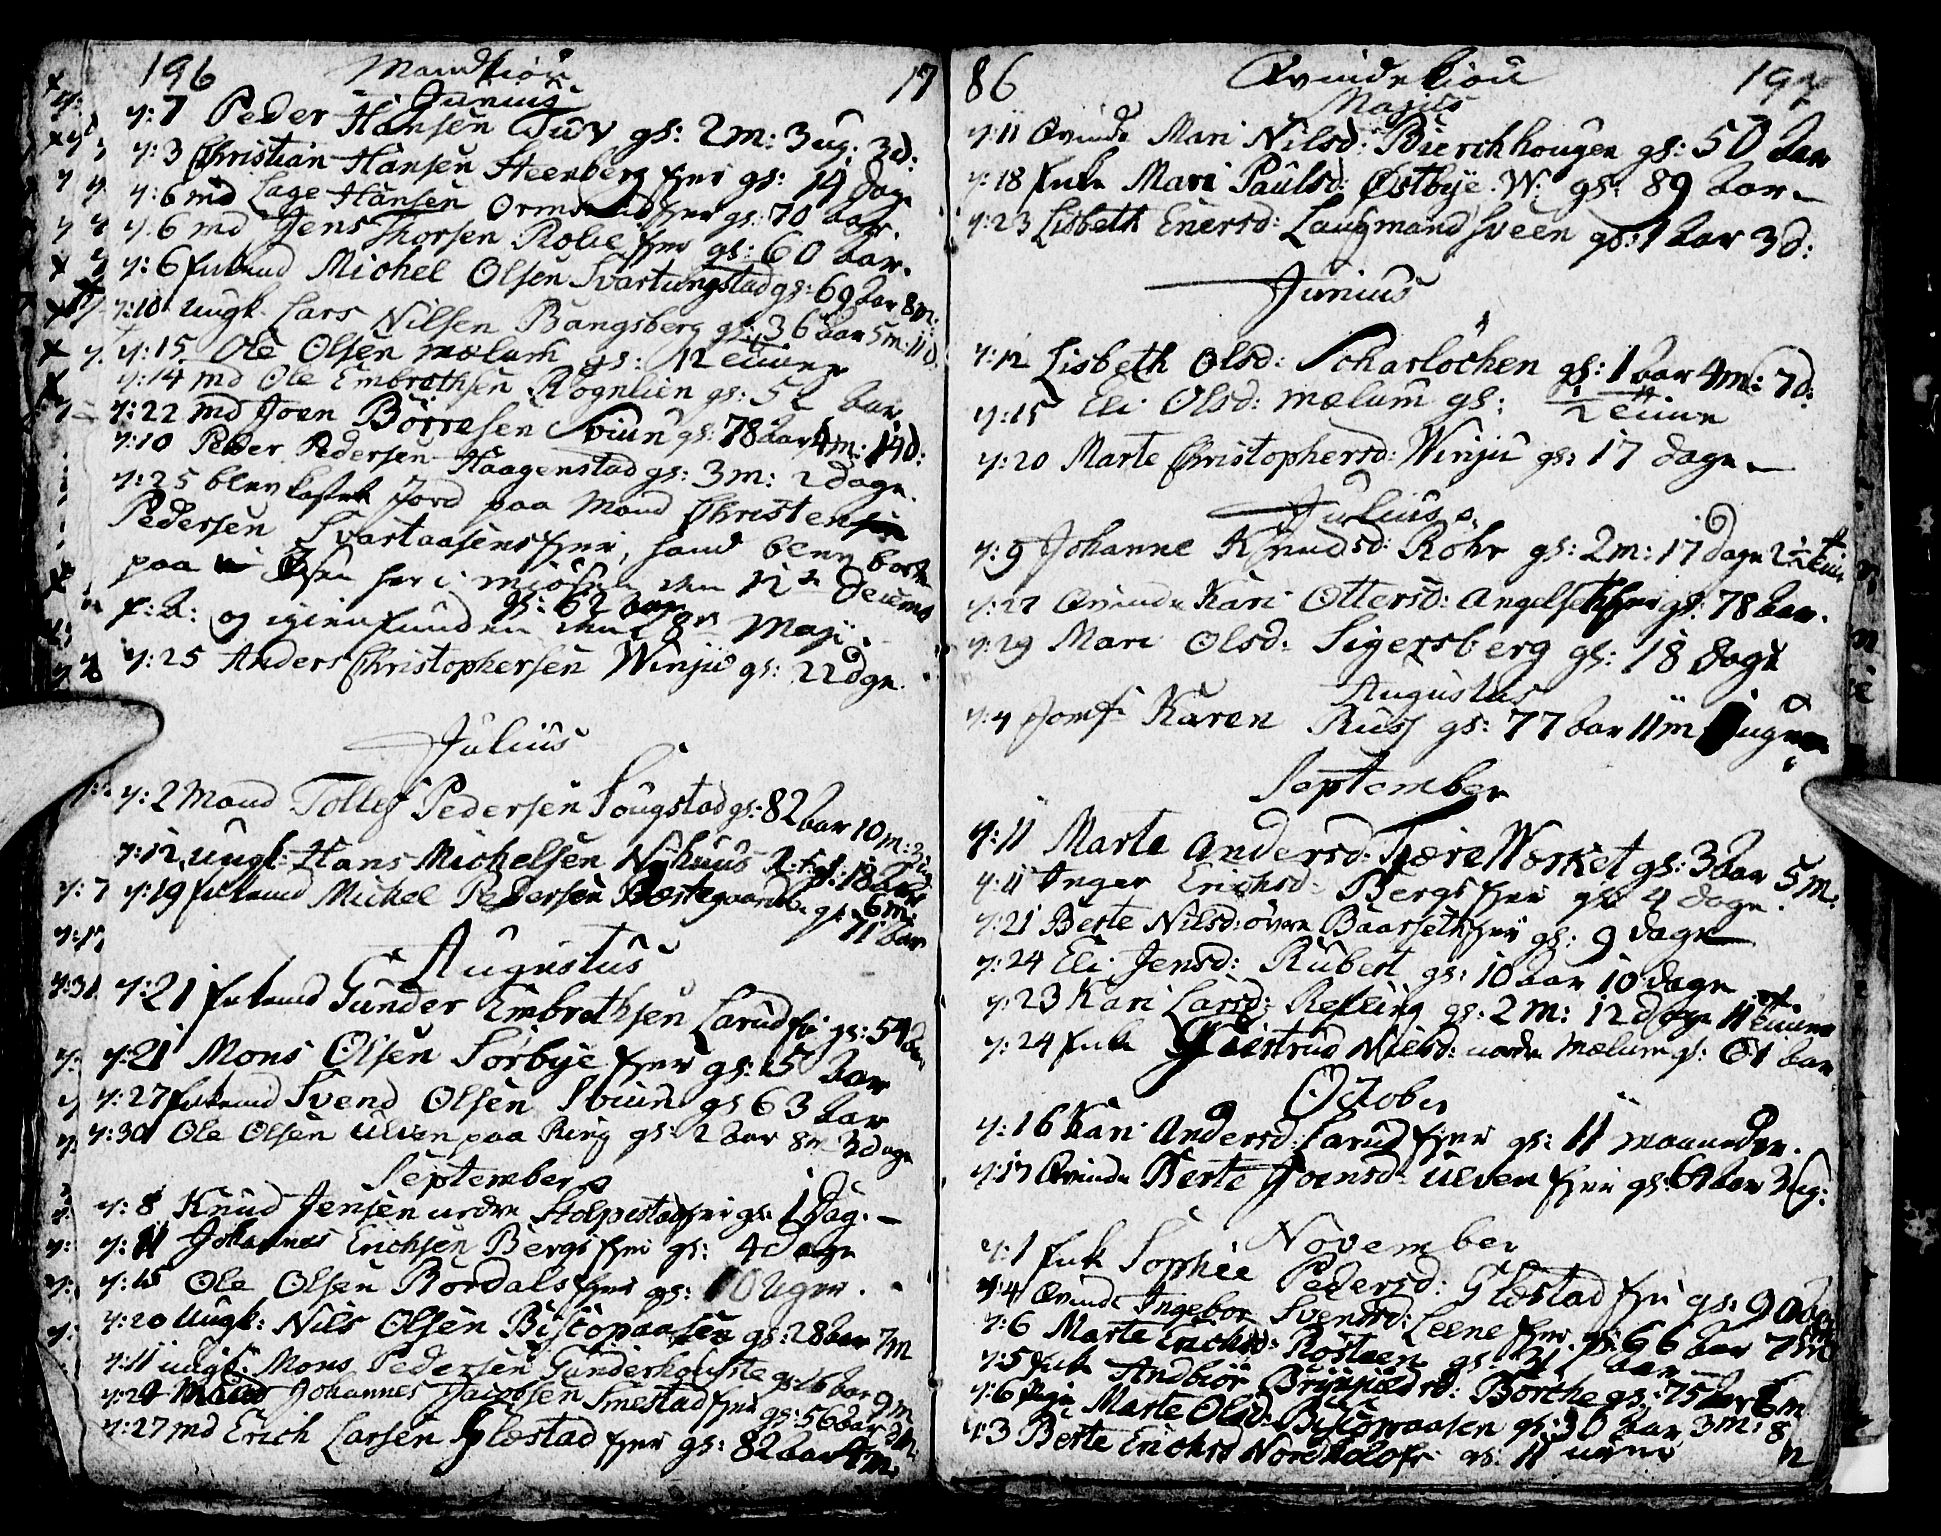 196 Mandkiön 17
Junius
7: 7 Peder Hansen Tuv gs: 2 m: 3 ug: 3 d:
7: 3 Christian Hansen Steenberg Eyer gs: 14 dage
7: 6 md Lage Hansen Ormsrud Eyer gs: 70 Aar.
7: 6 md Jens Thorsen Roboe Eyer gs: 60 Aar.
7: 6 Enkemd Michel Olsen Svartungstad gs: 69 Aar 8 m:
7: 10 Ungk. Lars Nilsen Bangsberg gs: 36 Aar 5 m: 11 d:
7: 15 Ole Olsen Mælum gs: 12
7: 14 md Ole Embrethsen Rognlien gs: 52 Aar.
7: 22 md Joen Börresen Sviun gs: 78 Aar 4 m: 14 d:
7: 10 Peder Pedersen Haagenstad gs: 3 m: 2 dage.
7: 25 blev kastet Jord paa Mand Christen
Pedersen Svartaasens Eyer, hand blev borte
paa Jisen her i Miösen den 12te Decemb
f: A: og igienfunden den 8de Maji.
gs: 62 Aar
7: 25 Anders Christophersen Winju gs: 22 dge.
Julius
7: 2 Mand Tollef Pedersen Sougstad gs: 82 Aar 10 m:
7: 12 Ungk: Hans Michelsen Nyhuus gs: 18 Aar
6 m:
7: 19 Enkemd Michel Pedersen gs 71 Aar
Augustus
7: 21 Enkemd Gunder Embrethsen Larud Eyer gs: 54 Aar
7: 21 Mons Olsen Sörbye Eyer gs: 5 Aar
7: 27 Enkemd Svend Olsen Sviun gs 63 Aar
7: 30 Ole Olsen Ulven paa Ring gs: 2 Aar 8 m 3 dage
September
7: 8 Knud Jensen nedre Stolpestad Eyer gs: 1 Dag.
7: 11 Johannes Erichsen Bergs Eyer gs: 4 dage
7: 15 Ole Olsen Bordals Eyer gs: 10 Uger.
7: 20 Ungk: Nils Olsen Biscopaasen gs: 28 Aar 7 m
7: 11 Ungk: Mons Pedersen Gunderhofste gs: 26 Aar 9 m
7: 29 Mand Johannes Jacobsen Smestad Eyer gs: 56 Aar 3 m
7: 27 md Erich Larsen Glæstad Eyer gs: 82 Aar 4 m:
86 Qvindekiön 197
Majus
7: 11 Qvinde Mari Nilsd: Bierchhougen gs: 50 Aar
7: 18 Enke Mari Paulsd: Østbye W: gs: 89 Aar
7: 23 Lisbeth Enersd: Laugmand Sveen gs: 1 Aar 3 d:
Junius
7: 12 Lisbeth Olsd: Scharlochen gs: 1 Aar 4 m: 7 d:
7: 15 Eli Olsd: Mælum gs: 1/2
7: 20 Marte Christophersd: Winju gs: 17 dage
Julius
7: 9 Johanne Knudsd: Röhr gs: 2 m: 17 dage
7: 27 Qvinde Kari Ottersd: Angelset Eyer gs: 78 Aar.
7: 29 Mari Olsd: Sigersberg gs: 18 dage
Augustus
7: 4 Jomf: Karen Russ gs: 77 Aar 11 m
September
7: 11 Marte Andersd: Tjære Wærket gs: 3 Aar 5 m.
7: 11 Inger Erichsd: Bergs Eyer gs: 4 dage.
7: 21 Berte Nilsd: övre Baarseth Eyer gs: 9 dage
7: 24 Eli Jensd: Rubert gs: 10 Aar 10 dage
7: 23 Kari Larsd: Refling gs: 2 m: 12 dage 11
7: 24 Enke Giertrud Nielsd: nedre Mælum gs: 61 Aar
October
7: 16 Kari Andersd: Larud Eyer gs: 11 maaneder.
7: 17 Qvinde Berte Joensd: Ulven Eyer gs: 61 Aar 3 ug:
November
7: 1 Enke Sophie Pedersd: Glæstad Eyer gs: 90 Aar
7: 4 Qvinde Ingebor Svendsd: Leene Eyer gs: 66 Aar 7 m
7: 6 Marte Erichsd: Rosteen gs: Aar
7: 5 Enke Andbiör Brynildsd: Borche gs: 75 Aar 6 m
7: 6 Pige Marte Olsd: Biscopaasen gs: 30 Aar 3 m: 8
7: 3 Berte Erichsd Nordholofs gs: 11